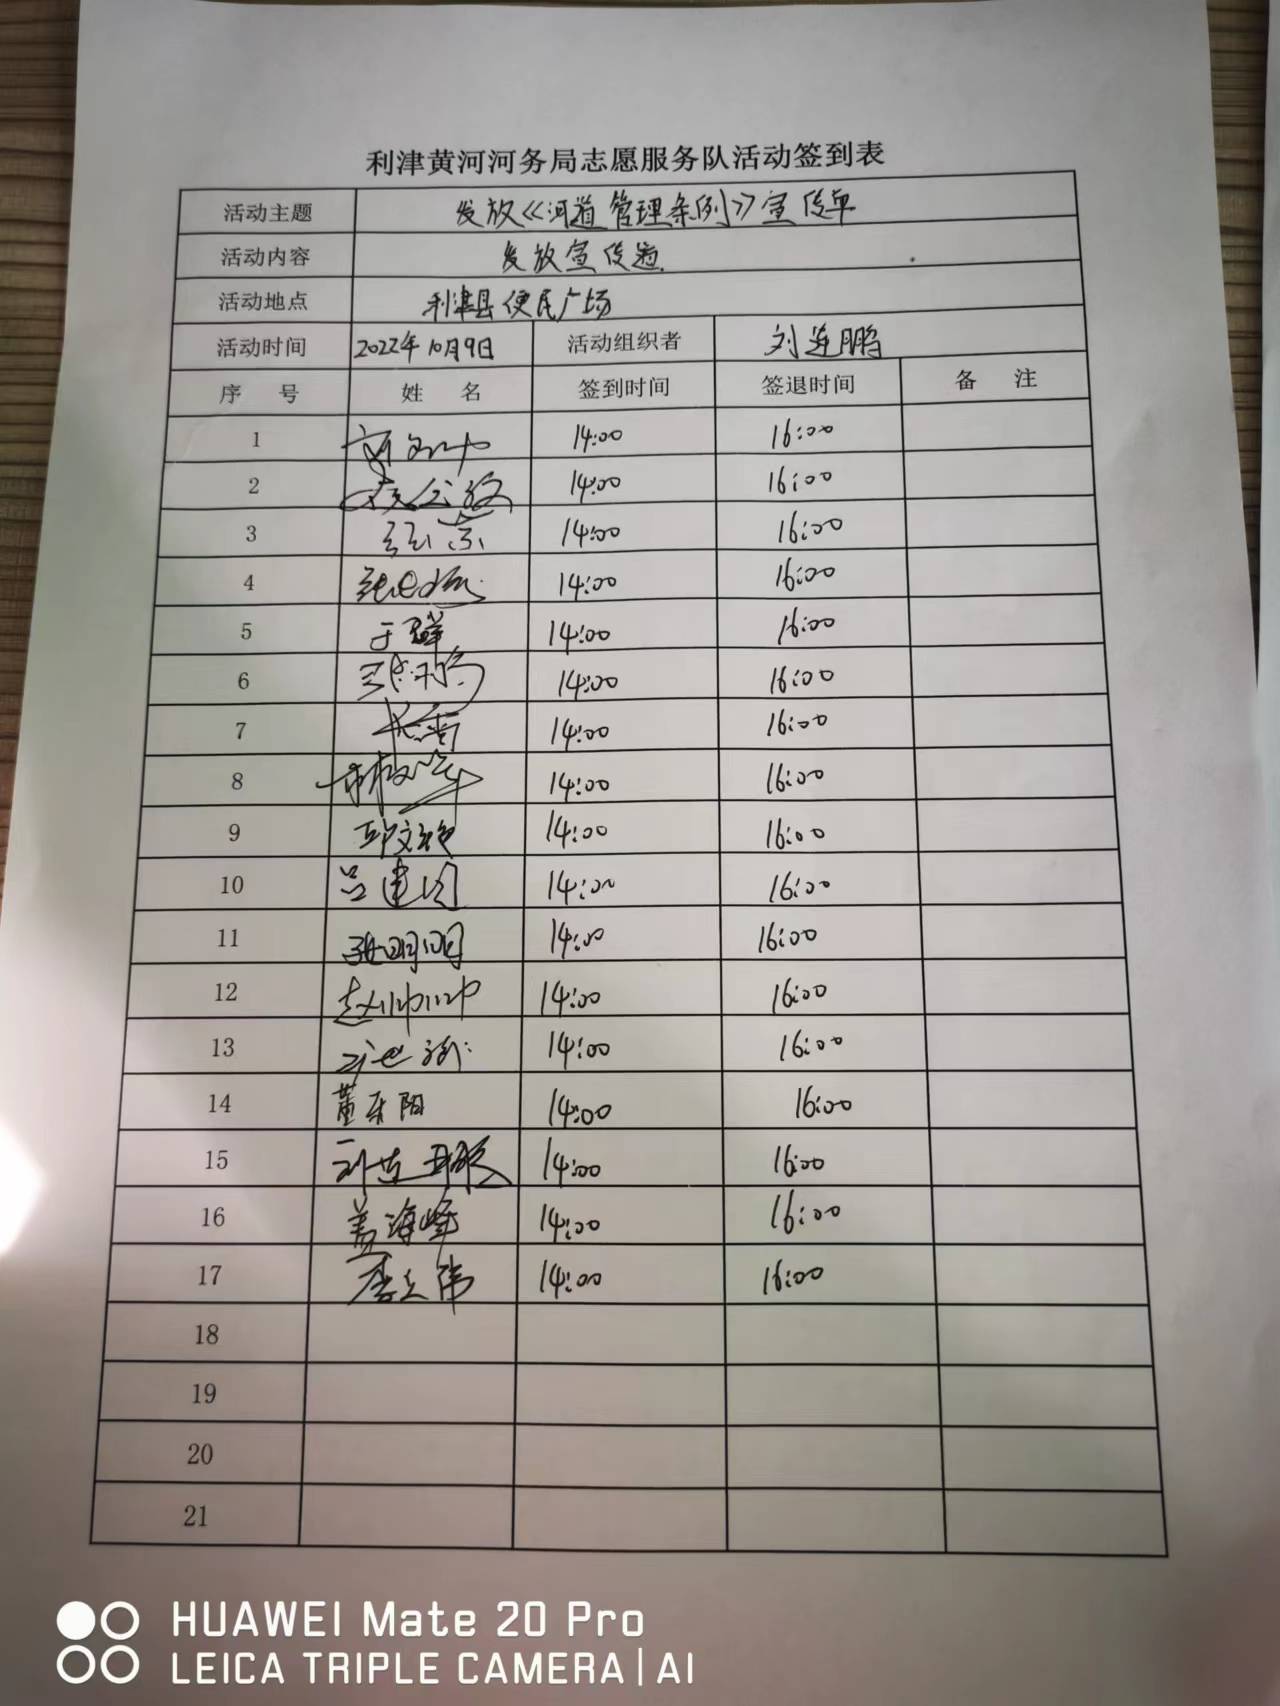 利津黄河河务局志愿服务队活动签到表
活动主题 发放《河道管理条例》宣传单
活动内容 发放宣传
活动地点 利津县便民广场
活动时间 2022年10月9日 活动组织者 刘连鹏
序 号 姓 名 签到时间 签退时间 备 注
1 14:00 16:00
2 14:00 16:00
3 14:00 16:00
4 14:00 16:00
5 于 14:00 16:00
6 14:00 16:00
7 14:00 16:00
8 14:00 16:00
9 14:00 16:00
10 吕建 14:00 16:00
11 张明明 14:00 16:00
12 赵帅帅 14:00 16:00
13 14:00 16:00
14 董乐阳 14:00 16:00
15 刘连鹏 14:00 16:00
16 盖海峰 14:00 16:00
17 李立伟 14:00 16:00
18
19
20
21
HUAWEI Mate 20 Pro
LEICA TRIPLE CAMERA | AI